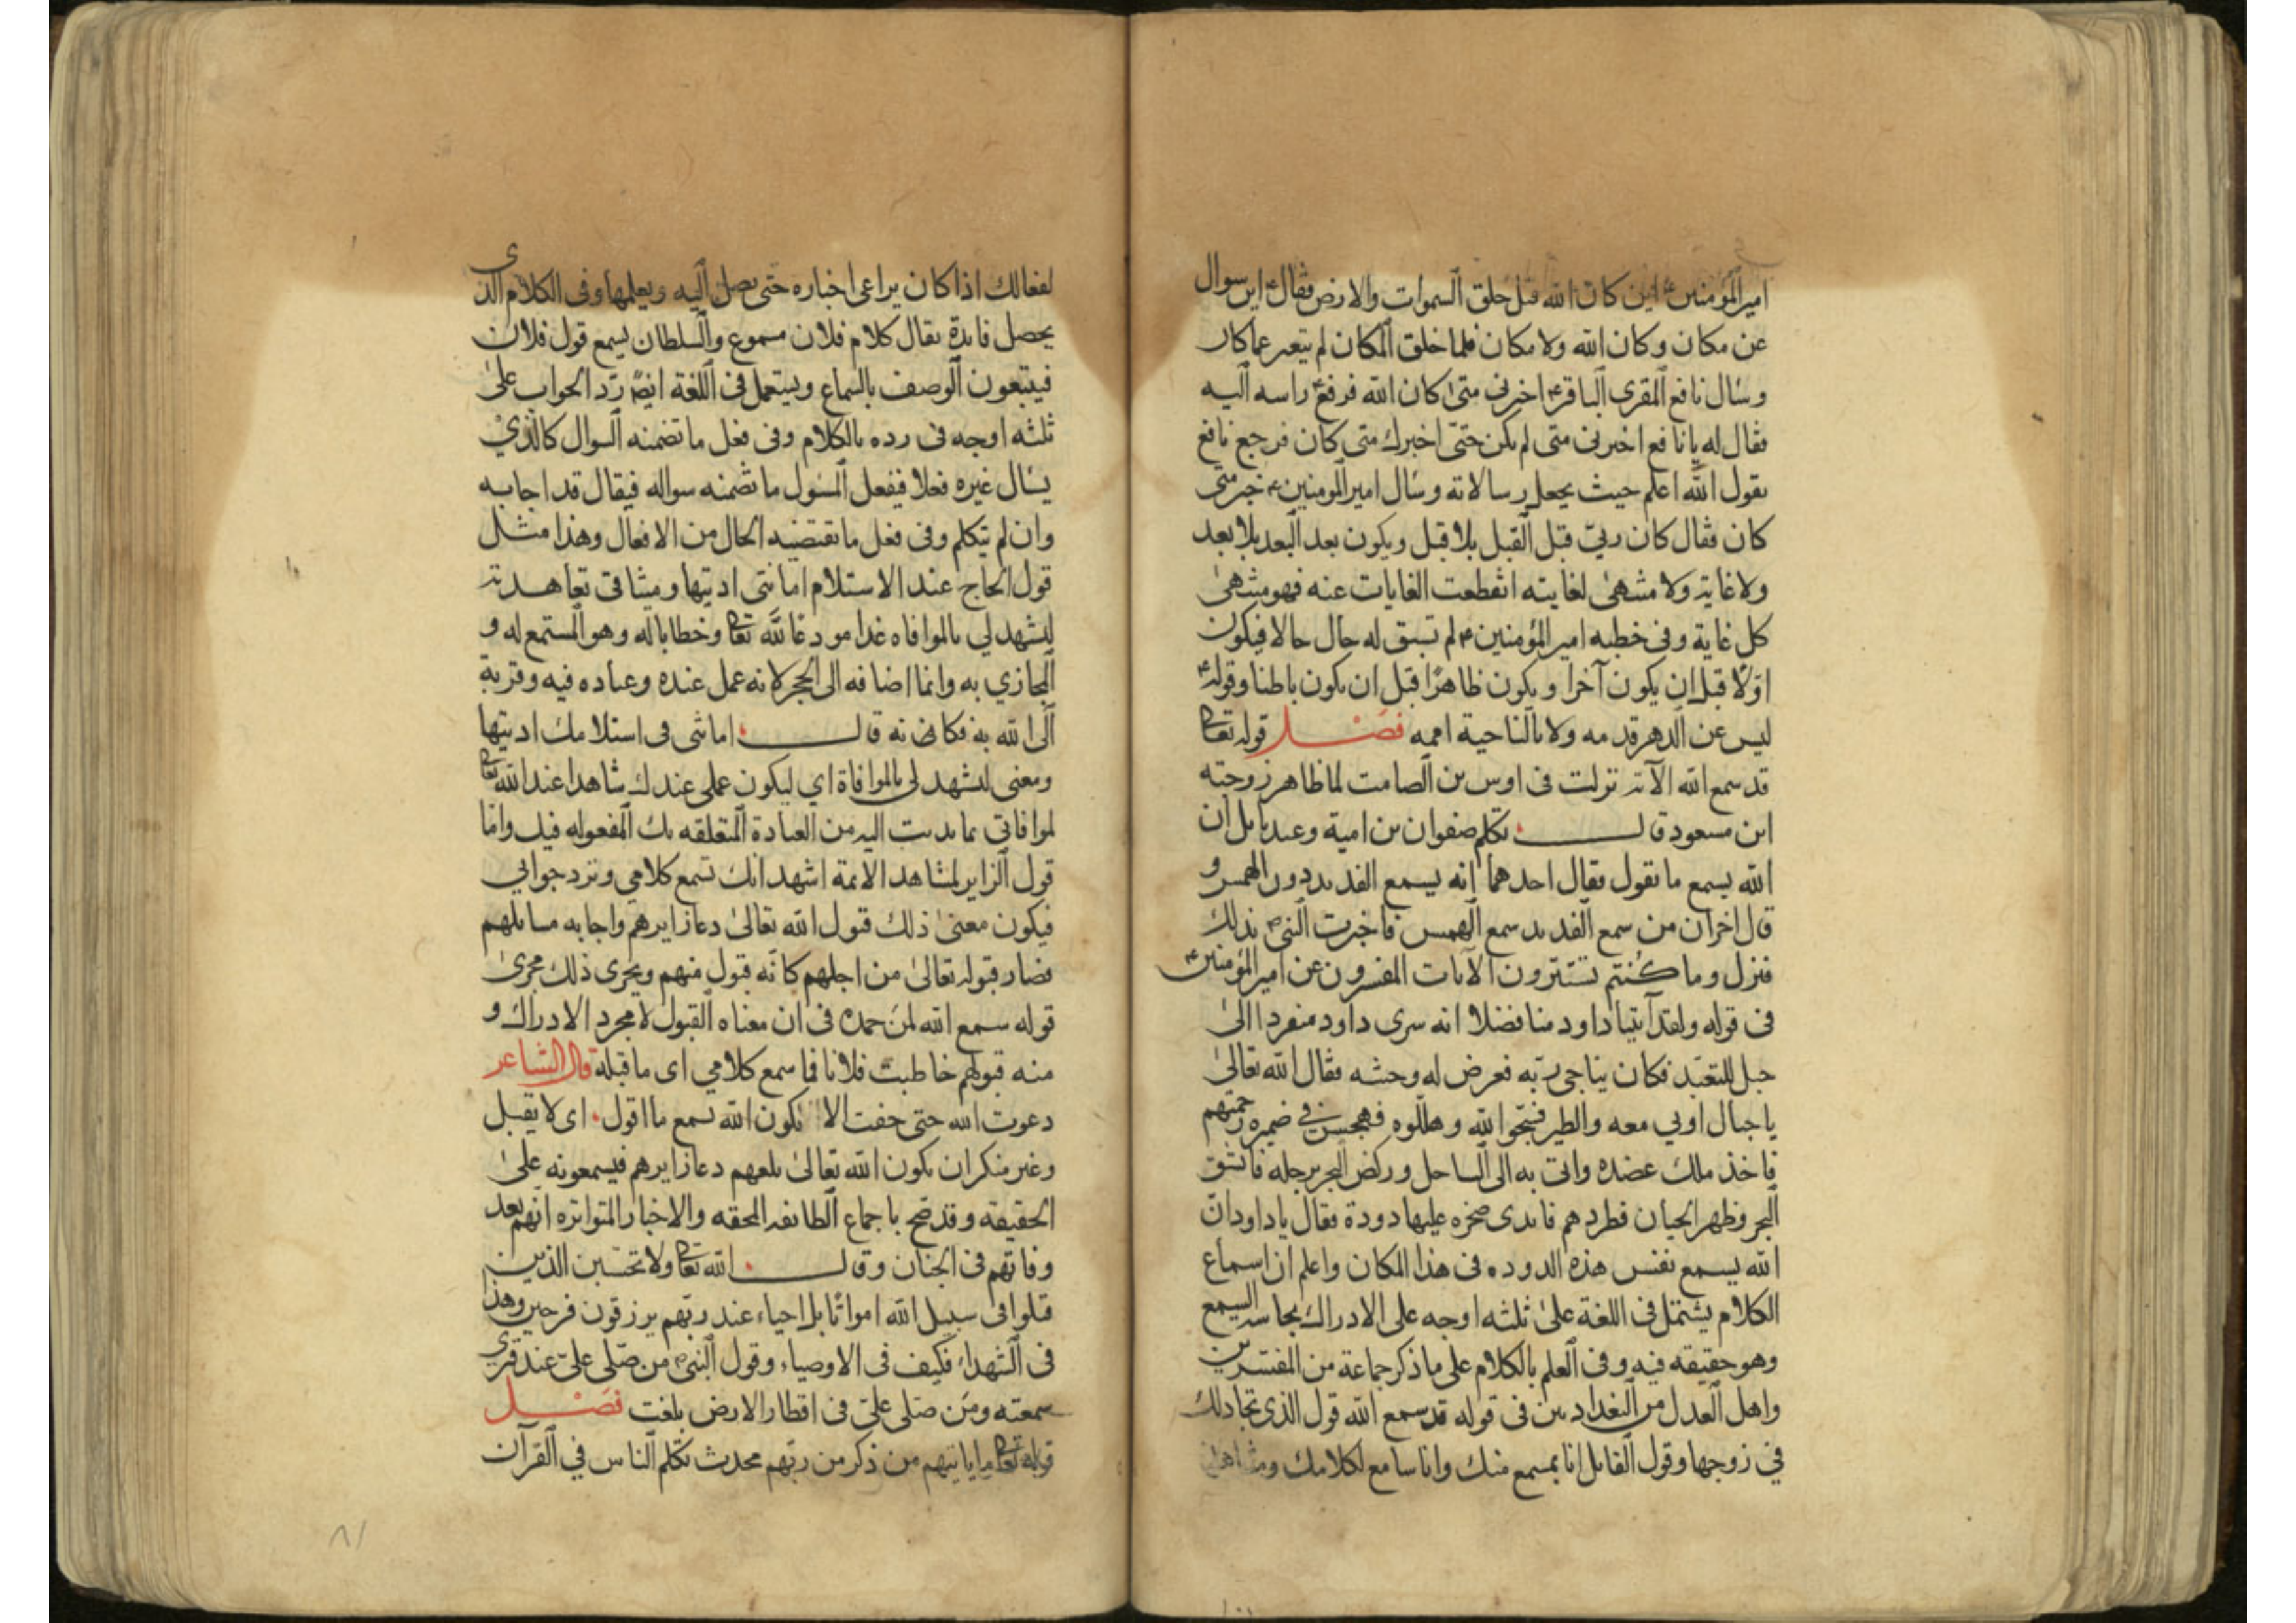 امير المؤمنين ع اين كان الله قبل خلق السموات والارض فقال ع اين سوال
عن مكان وكان الله ولا مكان فلما خلق المكان لم يتغير عما كان
وسال نافع المقرى الباقر ع اخبرنى متى كان الله فرفع راسه اليه
فقال له يا نافع اخبرنى متى لم يكن حتى اخبرك متى كان فرجع نافع
يقول الله اعلم حيث يجعل رسالاته وسال امير المومنين ع خبر متى
كان فقال كان ربي قبل القبل بلا قبل ويكون بعد البعد بلا بعد
ولا غاية ولا منتهى لغايته انقطعت الغايات عنه فهو منتهى
كل غاية وفى خطبه امير المؤمنين ع لم تسبق له حال حالا فيكون
اولا قبل ان يكون آخرا ويكون ظاهرا قبل ان يكون باطنا وقوله ع
ليس عن الدهر قدمه ولا بالناحية اممه فصل قوله تعالى
قد سمع الله الآية نزلت فى اوس بن الصامت لما ظاهر زوجته
ابن مسعود قال تكلم صفوان بن امية وعبد ياليل ان
الله يسمع ما نقول فقال احدهما انه يسمع الفديد دون الهمس و
قال اخر ان من سمع الفديد سمع الهمس فاخبرت النبى ص بذلك
فنزل وما كنتم تستترون الآيات المفسرون عن امير المؤمنين ع
فى قوله ولقد آتينا داود منا فضلا انه سرى داود منفردا الى
جبل للتعبد فكان يناجى ربه فعرض له وحشه فقال الله تعالى
يا جبال اوبي معه والطير فسبحوا لله وهللوه فهجس فى ضميره
فاخذ ملك عضده واتى به الى الساحل وركض البحر برجله فانشق
البحر وظهر الحيتان فطردهم فابدى صخره عليها دودة فقال يا داود ان
الله يسمع نفس هذه الدوده فى هذا المكان واعلم ان اسماع
الكلام يشتمل فى اللغة على ثلثه اوجه على الادراك بحاسه السمع
وهو حقيقته فيه وفى العلم بالكلام على ما ذكر جماعة من المفسرين
واهل العدل من البغداديين فى قوله قد سمع الله قول الذى تجادلك
في زوجها وقول القايل انا بمسمع منك وانا سامع لكلامك
لفعالك اذا كان يراعى اخباره حتى يصل اليه ويعلمها وفى الكلام الذى
يحصل فايدة يقال كلام فلان مسموع والسلطان يسمع قول فلان
فيتبعون الوصف بالسماع ويستعمل فى اللغة ايضا رد الجواب على
ثلثه اوجه فى رده بالكلام وفى فعل ما تضمنه السوال كالذي
يسال غيره فعلا فيفعل المسول ما تضمنه سواله فيقال قد اجابه
وان لم يتكلم وفى فعل ما تقتضيه الحال من الافعال وهذا مثل
قول الحاج عند الاستلام امانتى اديتها وميثاقى تعاهدته
لتشهد لي بالموافاه غدا مودعا لله تعالى وخطابا له وهو المستمع له و
المجازي به وانما اضافه الى الحجر لانه عمل عنده وعباده فيه وقربة
الى الله به فكانه قال امانتى فى استلامك اديتها
ومعنى لتشهد لى بالموافاة اي ليكون عملى عندك شاهدا عند الله تعالى
لموافاتى بما ندبت اليه من العبادة المتعلقه بك المفعوله فيك واما
قول الزاير لمشاهد الايمة اشهد انك تسمع كلامي وترد جوابي
فيكون معنى ذلك قبول الله تعالى دعا زايرهم واجابه مسايلهم
فصار قبوله تعالى من اجلهم كانه قبول منهم ويجرى ذلك مجرى
قوله سمع الله لمن حمده فى ان معناه القبول لا مجرد الادراك و
منه قبولهم خاطبت فلانا فما سمع كلامي اى ما قبله قال الشاعر
دعوت الله حتى خفت الا يكون الله يسمع ما اقول اى لا يقبل
وغير منكر ان يكون الله تعالى يبلغهم دعا زايرهم فيسمعونه على
الحقيقة وقد صح باجماع الطايفه المحقه والاخبار المتواتره انهم بعد
وفاتهم فى الجنان وقال الله تعالى ولا تحسبن الذين
قتلوا فى سبيل الله امواتا بل احياء عند ربهم يرزقون فرحين وهذا
فى الشهداء فكيف فى الاوصياء وقول النبى ص من صلى علي عند قبرى
سمعته ومن صلى علي فى اقطار الارض بلغت فصل
قوله تعالى ما ياتيهم من ذكر من ربهم محدث تكلم الناس في القرآن
٨١